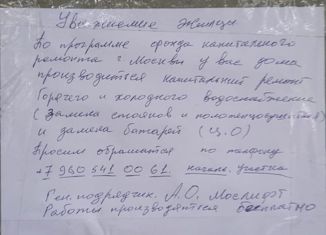 Уважаемие жильцы
По программе фонда капиталного
ремонта г Москвы у вас дома
производиться капитальний ремонт
Горячего и холодного водоснабжение
(Замена стояков и полотенцесушителя)
и замена батарат (ц.о)
Просим обращатся по телефону
+7 960 541 00 61 началн. участка
Ген. подрядчик. А.О. Мослифт
Работы производятся бесплатно